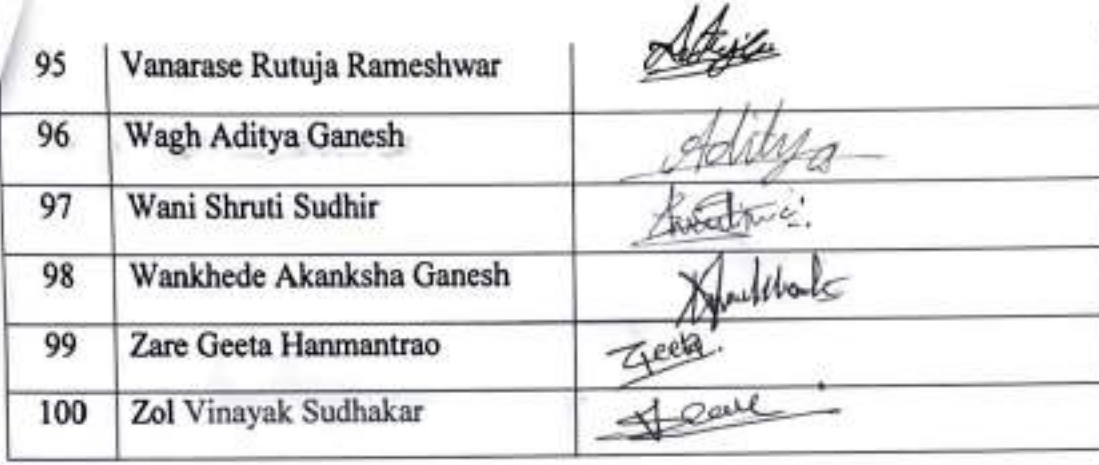 95 Vanarase Rutuja Rameshwar
96 Wagh Aditya Ganesh Aditya
97 Wani Shruti Sudhir
98 Wankhede Akanksha Ganesh
99 Zare Geeta Hanmantrao Geeta.
100 Zol Vinayak Sudhakar